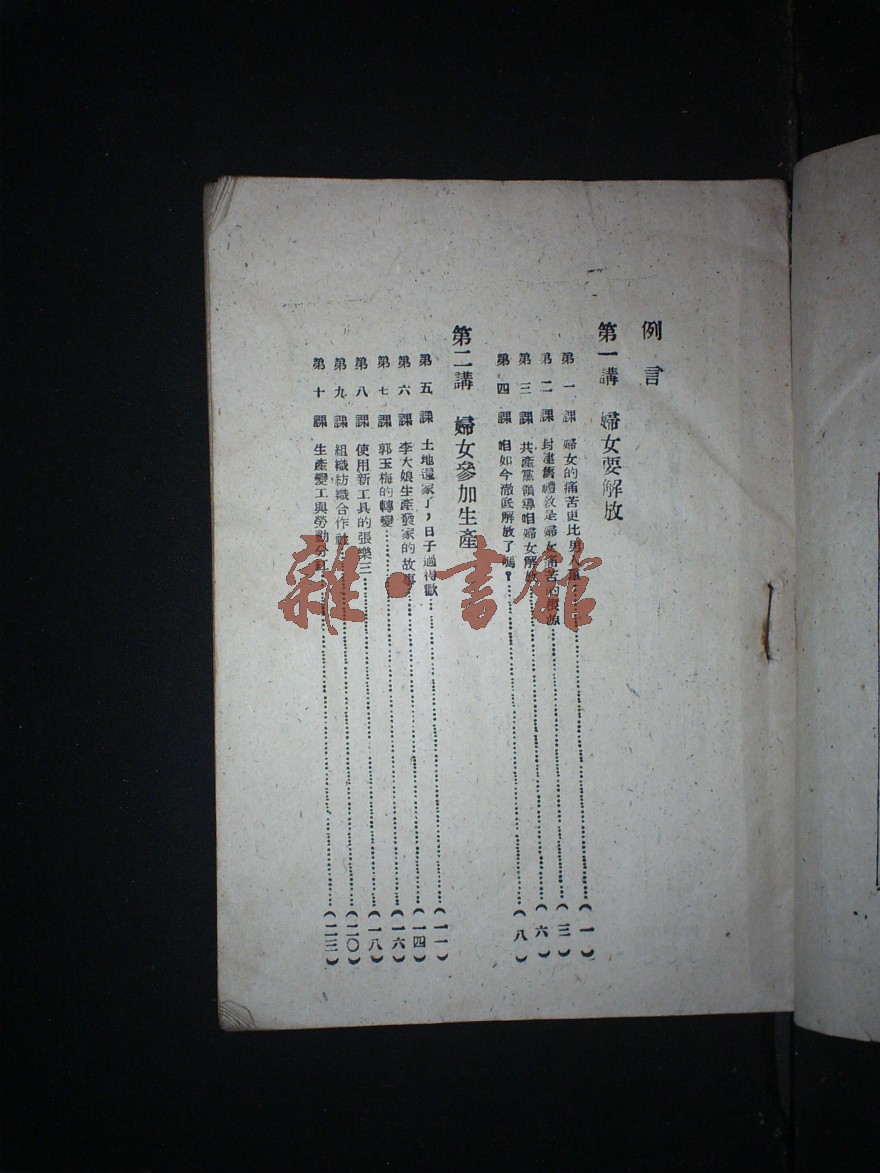 例言
第一講 婦女要解放
第一課 婦女的痛苦更比男人深……(一)
第二課 封建舊禮教是婦女痛苦的根源……(三)
第三課 共產黨領導咱婦女解放……(六)
第四課 咱如今澈底解放了嗎?……(八)
第二講 婦女參加生產
第五課 土地還家了,日子過得歡……(一一)
第六課 李大娘生產發家的故事……(一四)
第七課 郭玉梅的轉變……(一六)
第八課 使用新工具的張欒三……(一八)
第九課 組織紡織合作社……(二〇)
第十課 生產變工與勞動分紅……(二三)
雜·書館